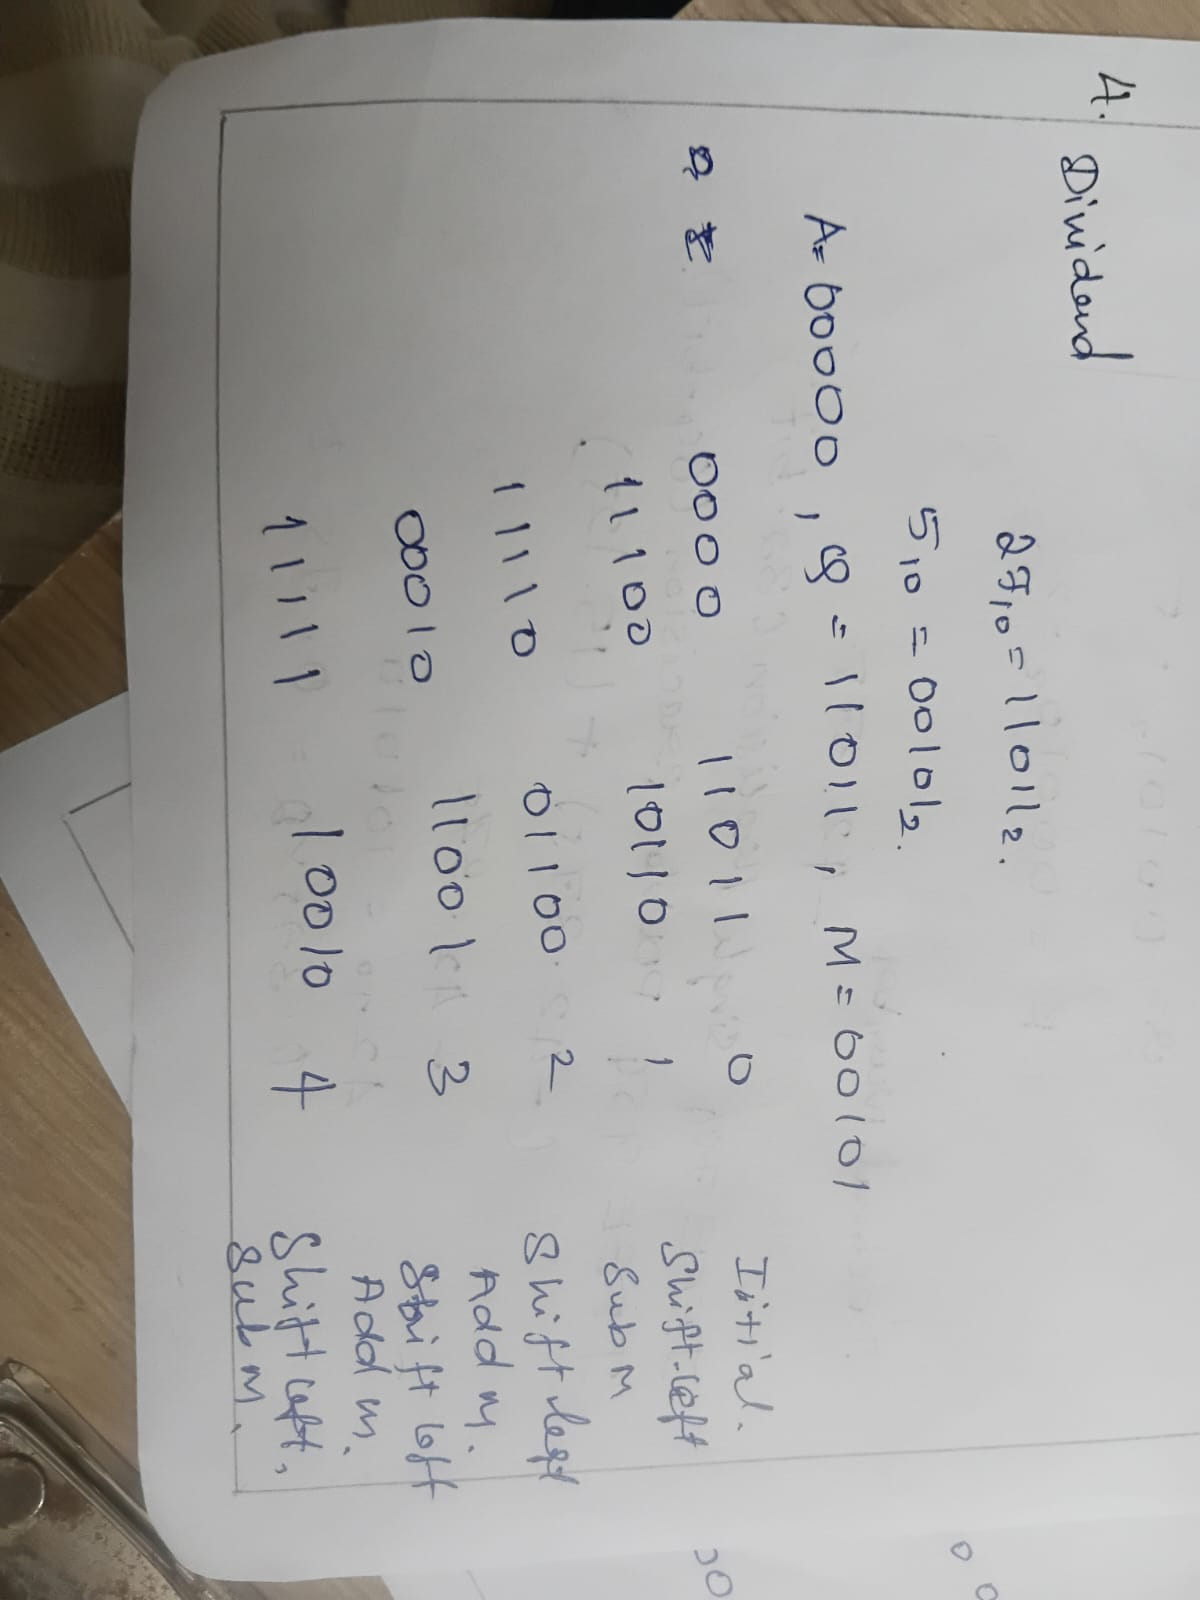 4. Dividend
27₁₀ = 11011₂.
5₁₀ = 00101₂.
A= 00000, Q = 11011, M = 00101
0000 11011 0 Iitial.
11100 10110 1 Shift left
Sub M
11110 01100 2 Shift left
Add M.
00010 11001 3 Shift left
Add M.
11111 10010 4 Shift left,
Sub M.